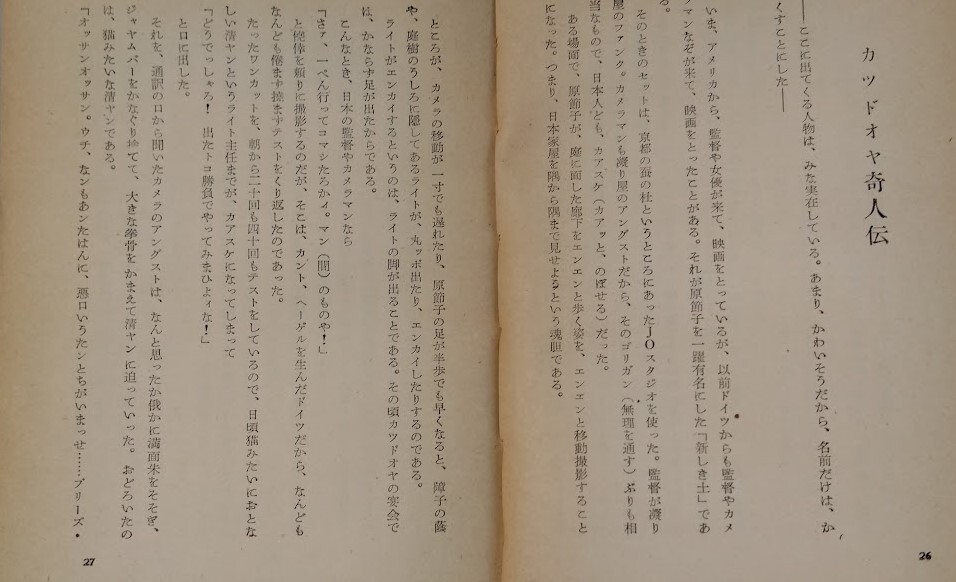 カツドォヤ奇人伝
――ここに出てくる人物は、みな実在している。あまり、かわいそうだから、名前だけは、か
くすことにした――
いま、アメリカから、監督や女優が来て、映画をとっているが、以前ドイツからも監督やカメ
ラマンなぞが来て、映画をとったことがある。それが原節子を一躍有名にした「新しき土」であ
る。
そのときのセットは、京都の蚕の社というところにあったJOスタジオを使った。監督が凝り
屋のファンク。カメラマンも凝り屋のアングストだから、そのゴリガン（無理を通す）ぶりも相
当なもので、日本人ども、カアスケ（カアッと、のぼせる）だった。
ある場面で、原節子が、庭に面した廊下をエンエンと歩く姿を、エンエンと移動撮影すること
になった。つまり、日本家屋を隅から隅まで見せようという魂胆である。
26
ところが、カメラの移動が一寸でも遅れたり、原節子の足が半歩でも早くなると、障子の蔭
や、庭樹のうしろに隠してあるライトが、丸ッポ出たり、エンカイしたりするのである。
ライトがエンカイするというのは、ライトの脚が出ることである。その頃カツドオヤの宴会で
は、かならず足が出たからである。
こんなとき、日本の監督やカメラマンなら
「さァ、一ぺん行ってコマシたろかィ。マン（間）のものや！」
と僥倖を頼りに撮影するのだが、そこは、カント、ヘーゲルを生んだドイツだから、なんども
なんども倦まず撓まずテストをくり返したのであった。
たったワンカットを、朝から二十回も四十回もテストをしているので、日頃猫みたいにおとな
しい清ヤンというライト主任までが、カアスケになってしまって
「どうでっしゃろ！　出たトコ勝負でやってみまひよィな！」
と口に出した。
それを、通訳の口から聞いたカメラのアングストは、なんと思ったか俄かに満面朱をそそぎ、
ジャムパーをかなぐり捨てて、大きな拳骨をかまえて清ヤンに迫っていった。おどろいたの
は、猫みたいな清ヤンである。
「オッサンオッサン。ウチ、なンもあンたはんに、悪口いうたンとちがいまっせ……プリーズ・
27